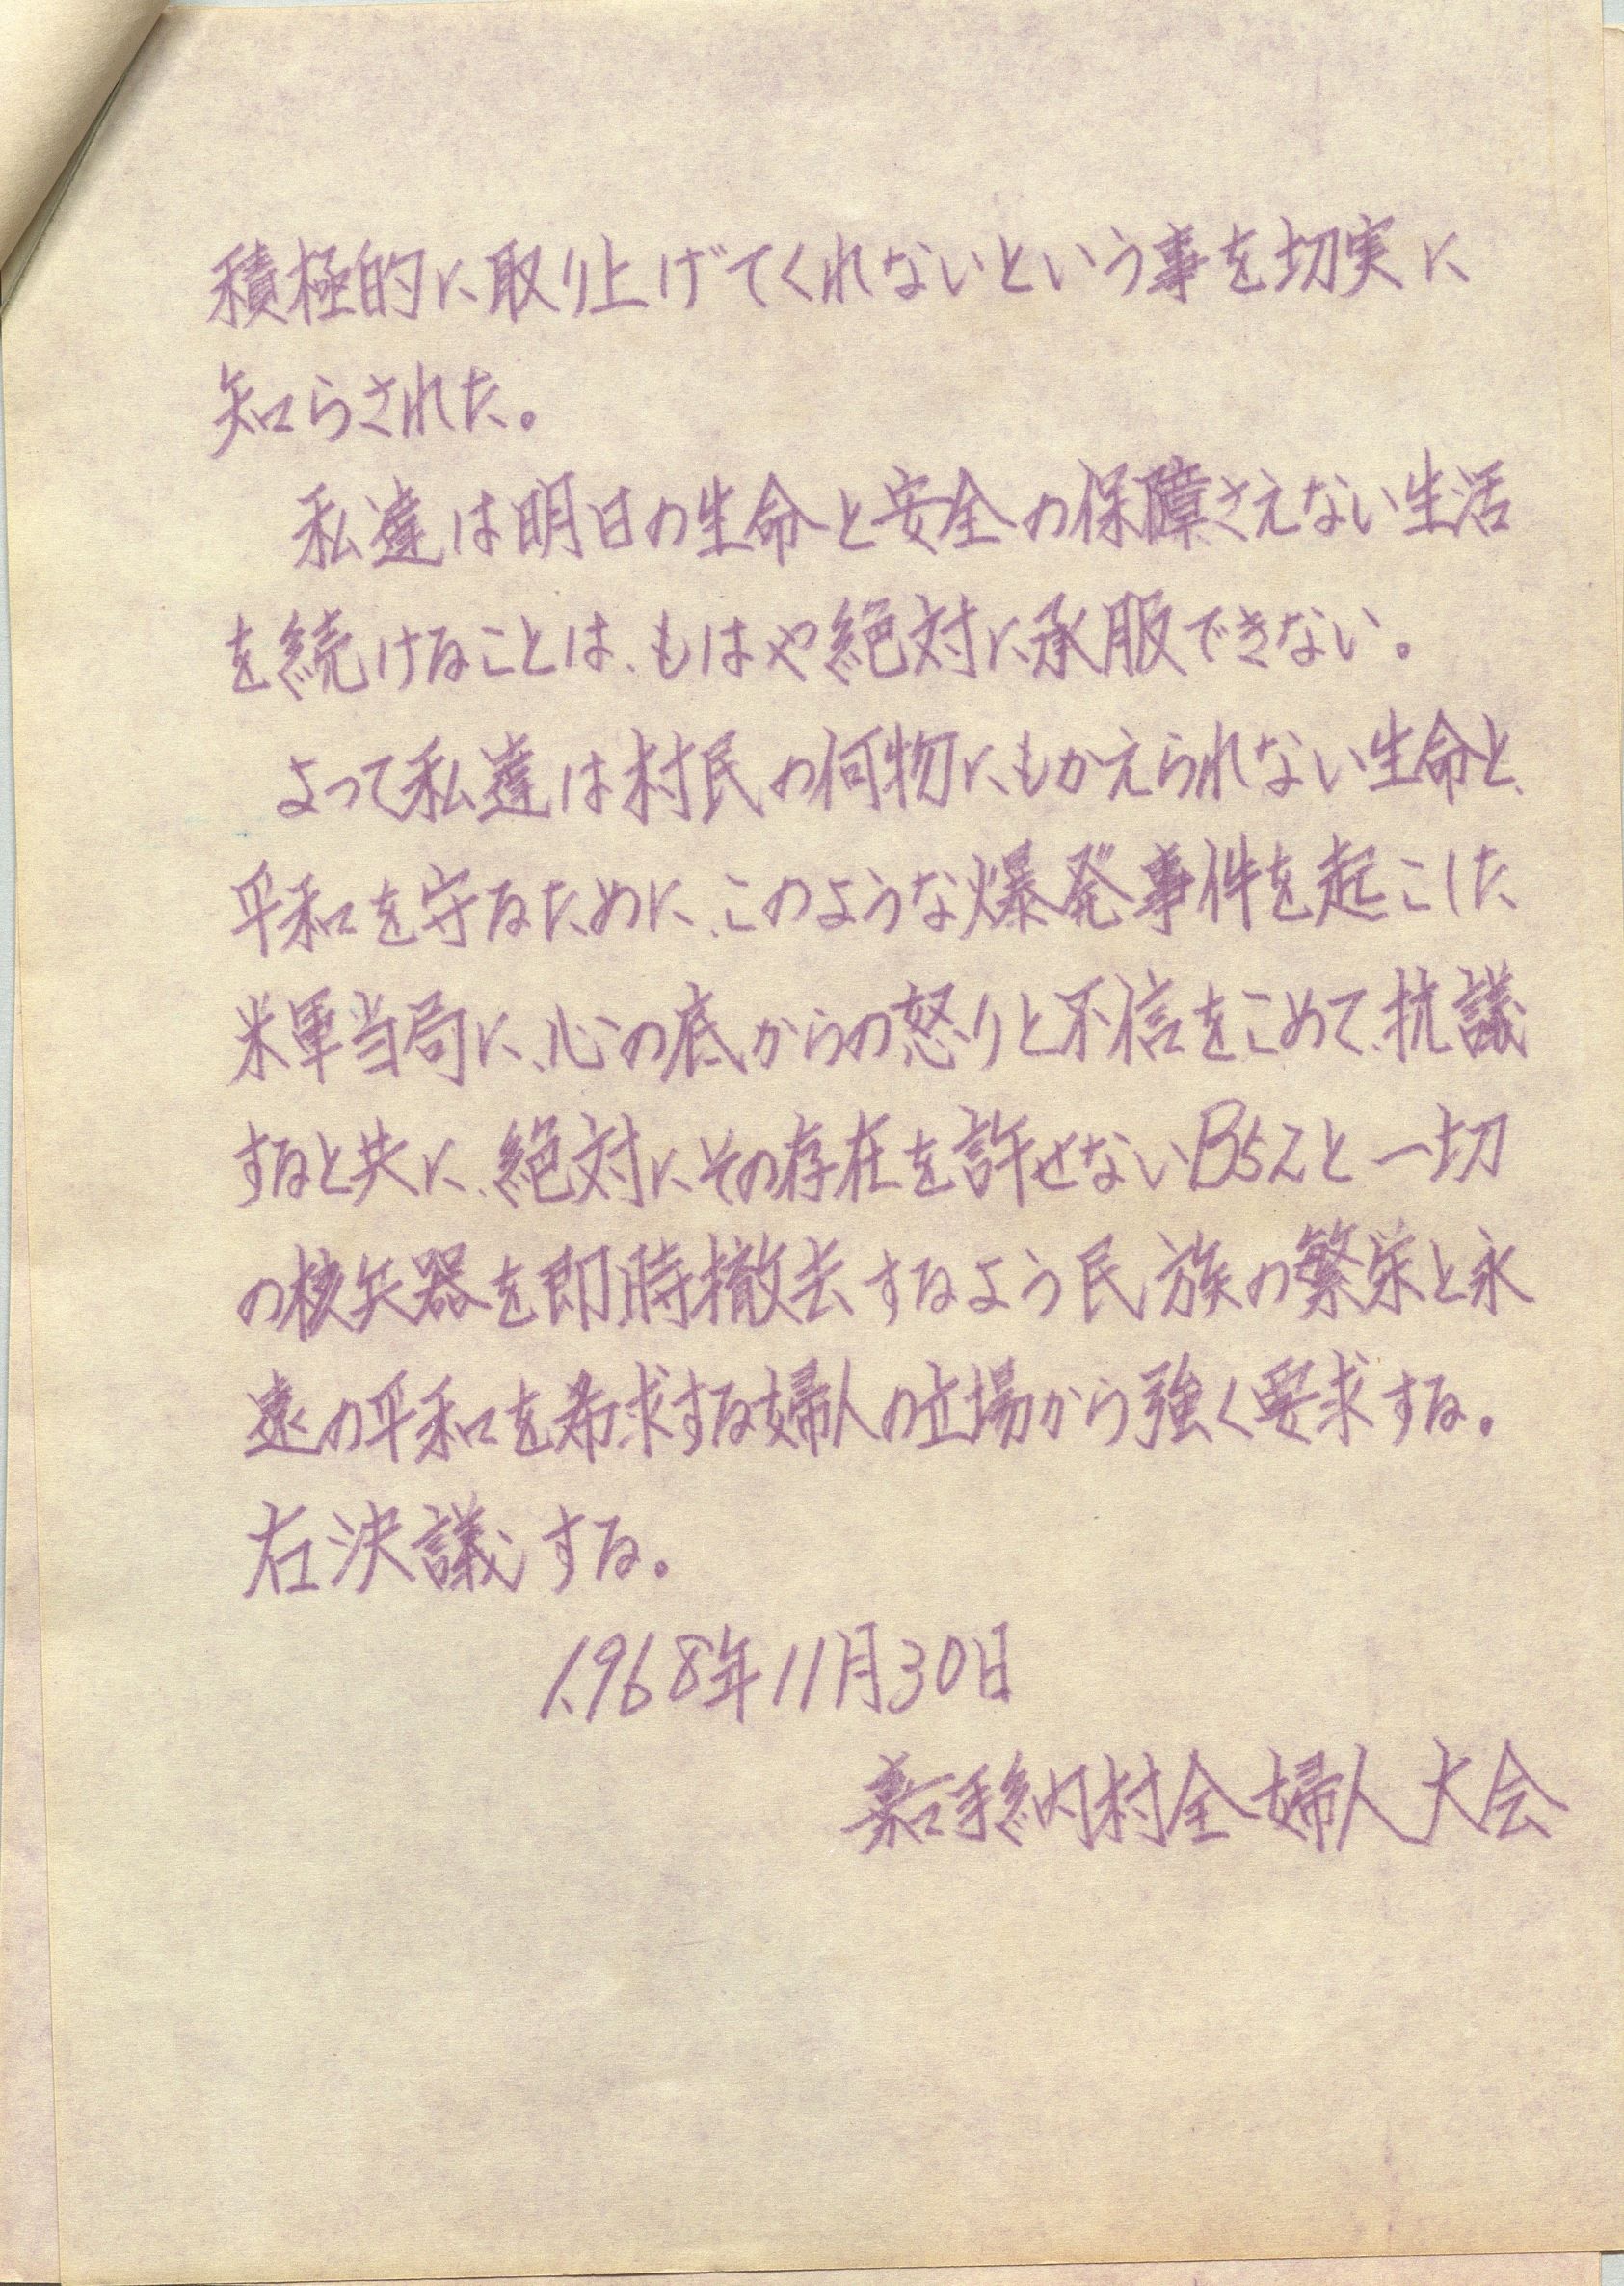 積極的に取り上げてくれないという事を切実に
知らされた。
私達は明日の生命と安全の保障さえない生活
を続けることは、もはや絶対に承服できない。
よって私達は村民の何物にもかえられない生命と、
平和を守るために、このような爆発事件を起こした
米軍当局に、心の底からの怒りと不信をこめて、抗議
すると共に、絶対にその存在を許せないB52と一切
の核兵器を即時撤去するよう民族の繁栄と永
遠の平和を希求する婦人の立場から強く要求する。
右決議する。
1.968年11月30日
嘉手納村全婦人大会